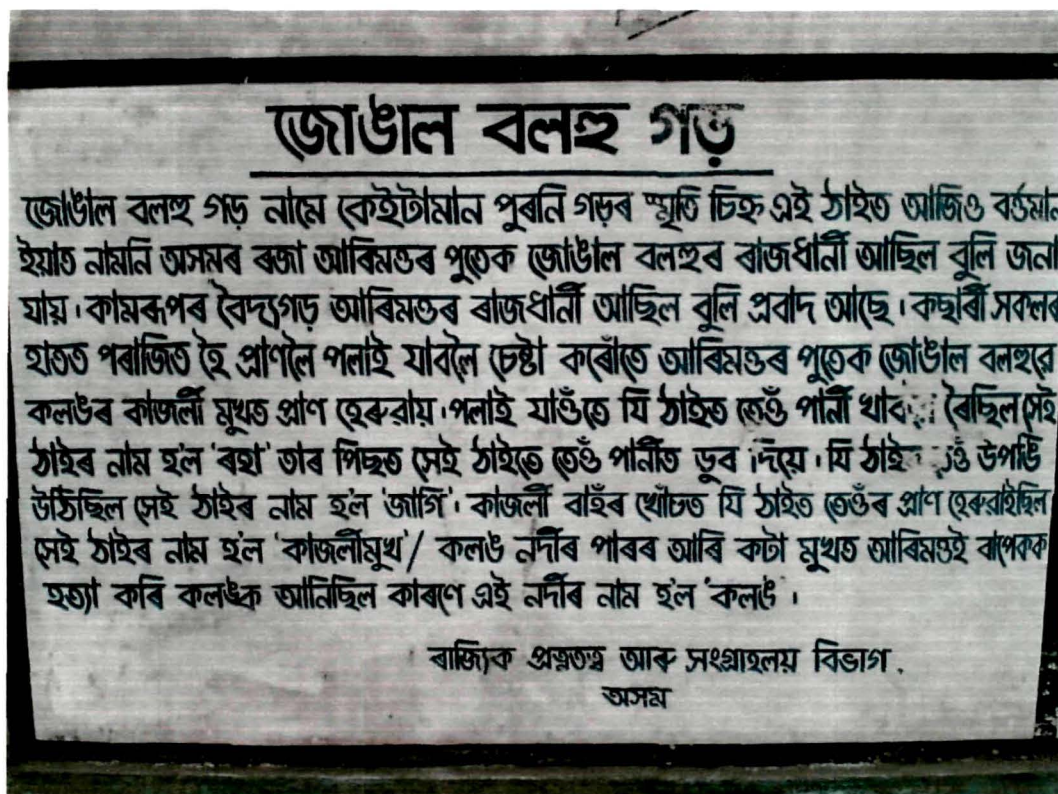 জোঙাল বলহু গড়
জোঙাল বলহু গড় নামে কেইটামান পুৰনি গড়ৰ স্মৃতি চিহ্ন এই ঠাইত আজিও বৰ্ত্তমান
ইয়াত নামনি অসমৰ ৰজা আৰিমত্তৰ পুতেক জোঙাল বলহুৰ ৰাজধানী আছিল বুলি জনা
যায়। কামৰূপৰ বৈদ্যগড় আৰিমত্তৰ ৰাজধানী আছিল বুলি প্ৰবাদ আছে। কছাৰী সকলৰ
হাতত পৰাজিত হৈ প্ৰাণলৈ পলাই যাবলৈ চেষ্টা কৰোঁতে আৰিমত্তৰ পুতেক জোঙাল বলহুৱে
কলঙৰ কাজলী মুখত প্ৰাণ হেৰুৱায়। পলাই যাওঁতে যি ঠাইত তেওঁ পানী ৰৈছিল সেই
ঠাইৰ নাম হ'ল 'ৰহা' তাৰ পিছত সেই ঠাইতে তেওঁ পানীত ডুব দিয়ে। যি উপঙি
উঠিছিল সেই ঠাইৰ নাম হ'ল 'জাগি'। কাজলী বাহঁৰ খোঁচত যি ঠাইত তেওঁৰ প্ৰাণ হেৰুৱাইছিল
সেই ঠাইৰ নাম হ'ল 'কাজলীমুখ'/ কলঙ নদীৰ পাৰৰ আৰি কটা মুখত আৰিমত্তই বাপেকক
হত্যা কৰি কলঙ্ক আনিছিল কাৰণে এই নদীৰ নাম হ'ল 'কলঙ'।
ৰাজ্যিক প্ৰত্নতত্ব আৰু সংগ্ৰাহলয় বিভাগ.
অসম